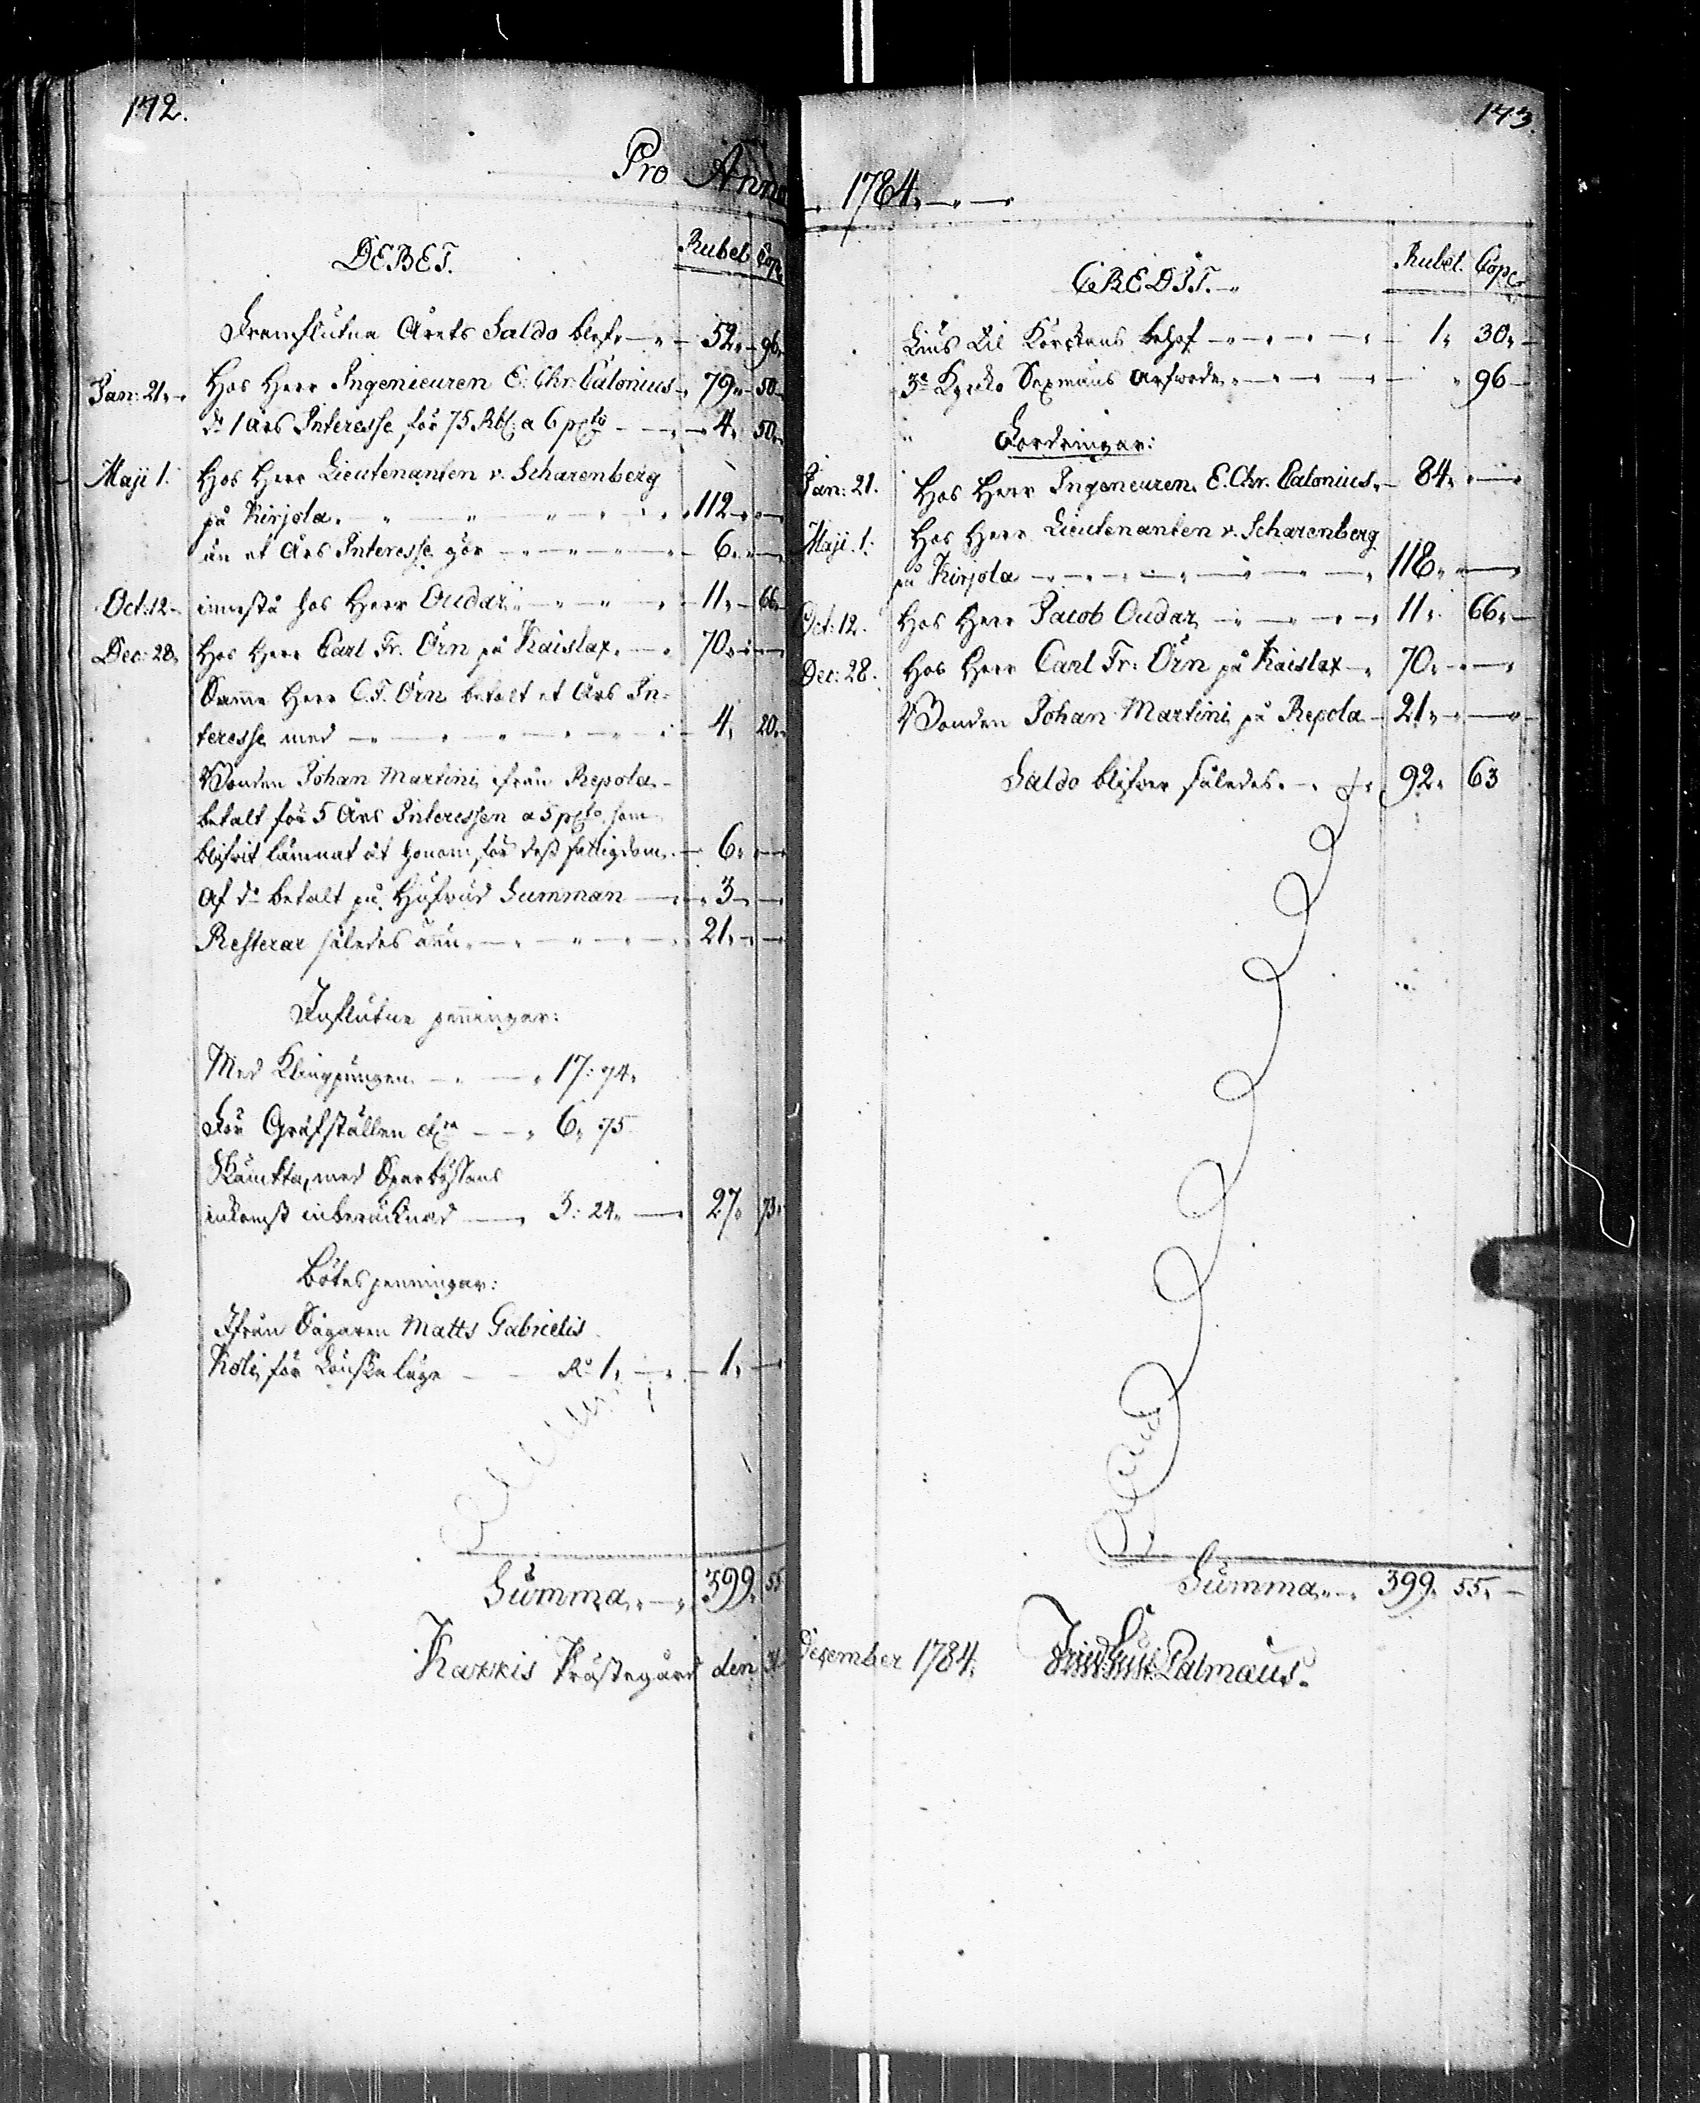 172.
Pro Anno
DEBET.
Rubel Cop.
Framflutna Årets Saldo blef 52. 96.
Jan: 21. Hos Herr Ingenieuren E. Chr. Calonius 79. 50
do 1 års Interesse för 75 Rbl. a 6 pcto 4. 50.
Maji 1. Hos Herr Lieutenanten v. Scharenberg
på Kirjola. 112.
än et Års Interesse gör 6.
Oct: 12. innestå hos Herr Oudar 11. 66.
Dec: 28. Hos Herr Carl Fr. Örn på Kaislax. 70.
Samme Herr C. F. Örn betalt et Års In-
teresse med 4. 20.
Bonden Johan Martini ifrån Repola
betalt för 5 Års Interessen a 5 pcto som
blifvit lämnat åt honom för dess fattigdom. 6.
Af do betalt på Hufvud Summan 3
Resterar således ännu 21.
Influtne penningar:
Med Klingpungen 17: 74.
För Grafställen 6. 75
med Sparbyssans
inkomst inberäcknad 3: 24. 27. 73.
Bötespenningar:
Ifrån Sågaren Matts Gabrielis
Koli, för Lönskaläge Ro 1. 1.
Summa 399. 55
Kaxkis Prästegård den 31

173.
1784.
CREDIT.
Rubel. Cop.
Ljus til Kyrckans behof 1. 30.
96
Fordringar:
Jan: 21. Hos Herr Ingeneuren E. Chr. Calonius. 84.
Maji. 1. Hos Herr Lieutenanten v. Scharenberg
på Kirjola 118.
Oct: 12. Hos Herr Jacob Oudar 11. 66.
Dec: 28. Hos Herr Carl Fr: Örn på Kaislax 70.
Bonden Johan Martini på Repola 21.
Saldo blifver således. 92. 63
Summa 399. 55.
December 1784. Palmæus.